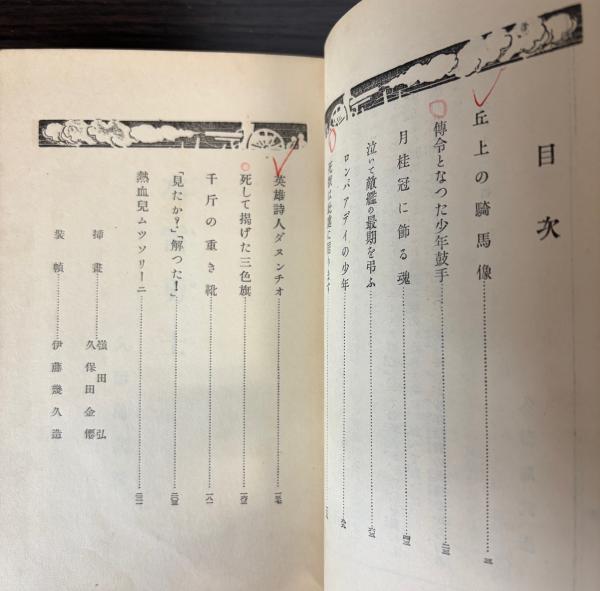 目次
丘上の騎馬像……三
傳令となつた少年鼓手……二三
月桂冠に飾る魂……四三
泣いて敵艦の最期を弔ふ……六三
ロンバアデイの少年……九
英雄詩人ダヌンチオ
死して揚げた三色旗
千斤の重き靴……一八一
「見たか?」「解つた!」……二〇三
熱血兒ムツソリーニ
挿畫……强田弘
久保田金僊
裝幀……伊藤幾久造